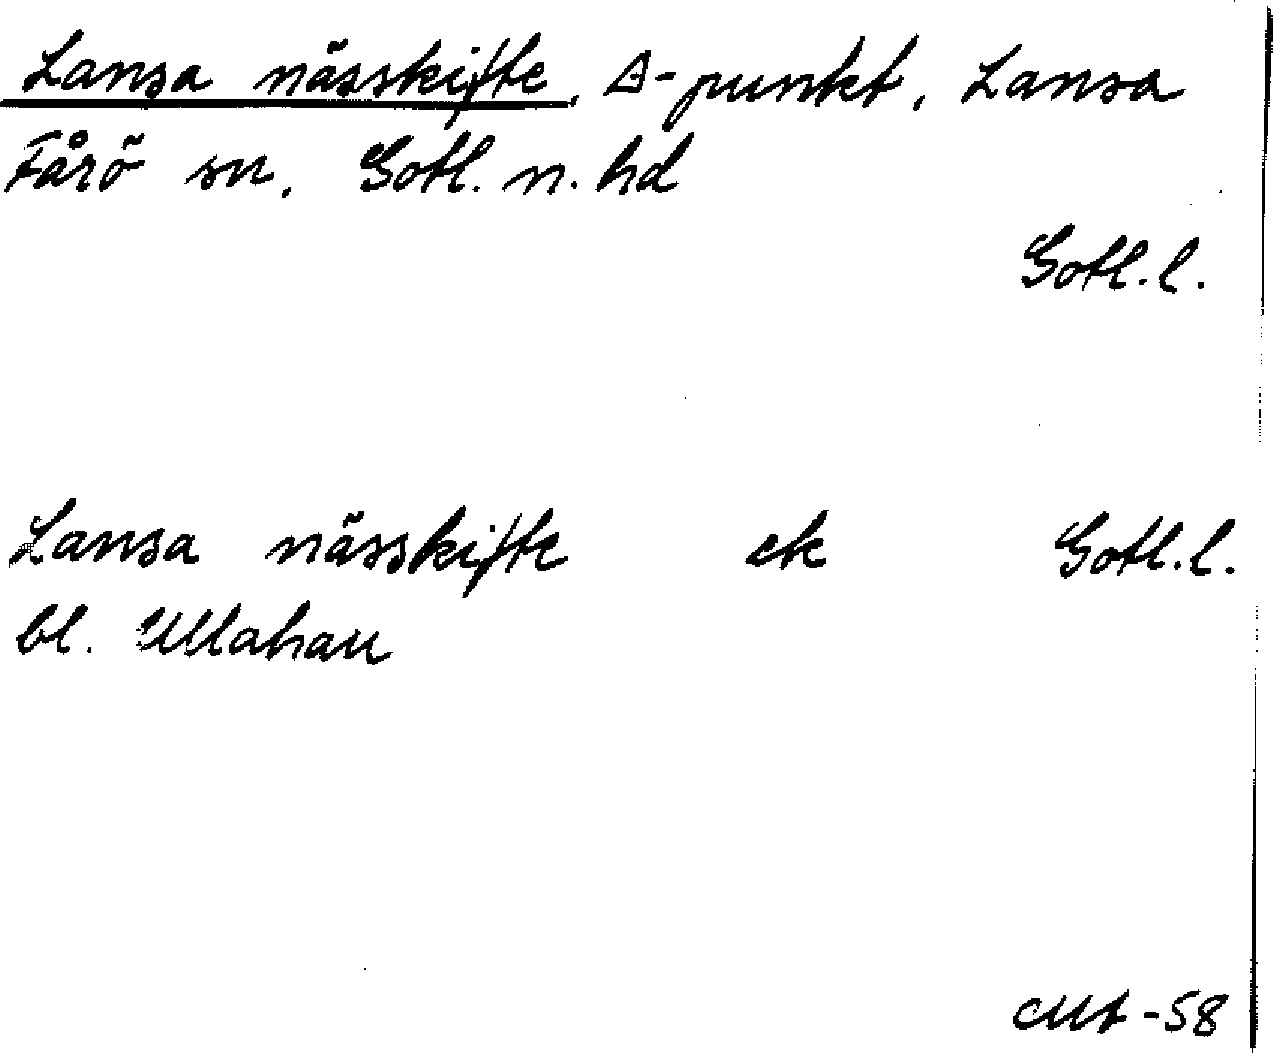 Lansa nässkifte, Δ-punkt, Lansa
Fårö sn, Gotl. n. hd
Gotl. l.
Lansa nässkifte ek Gotl. l.
bl. Ullahau
-58